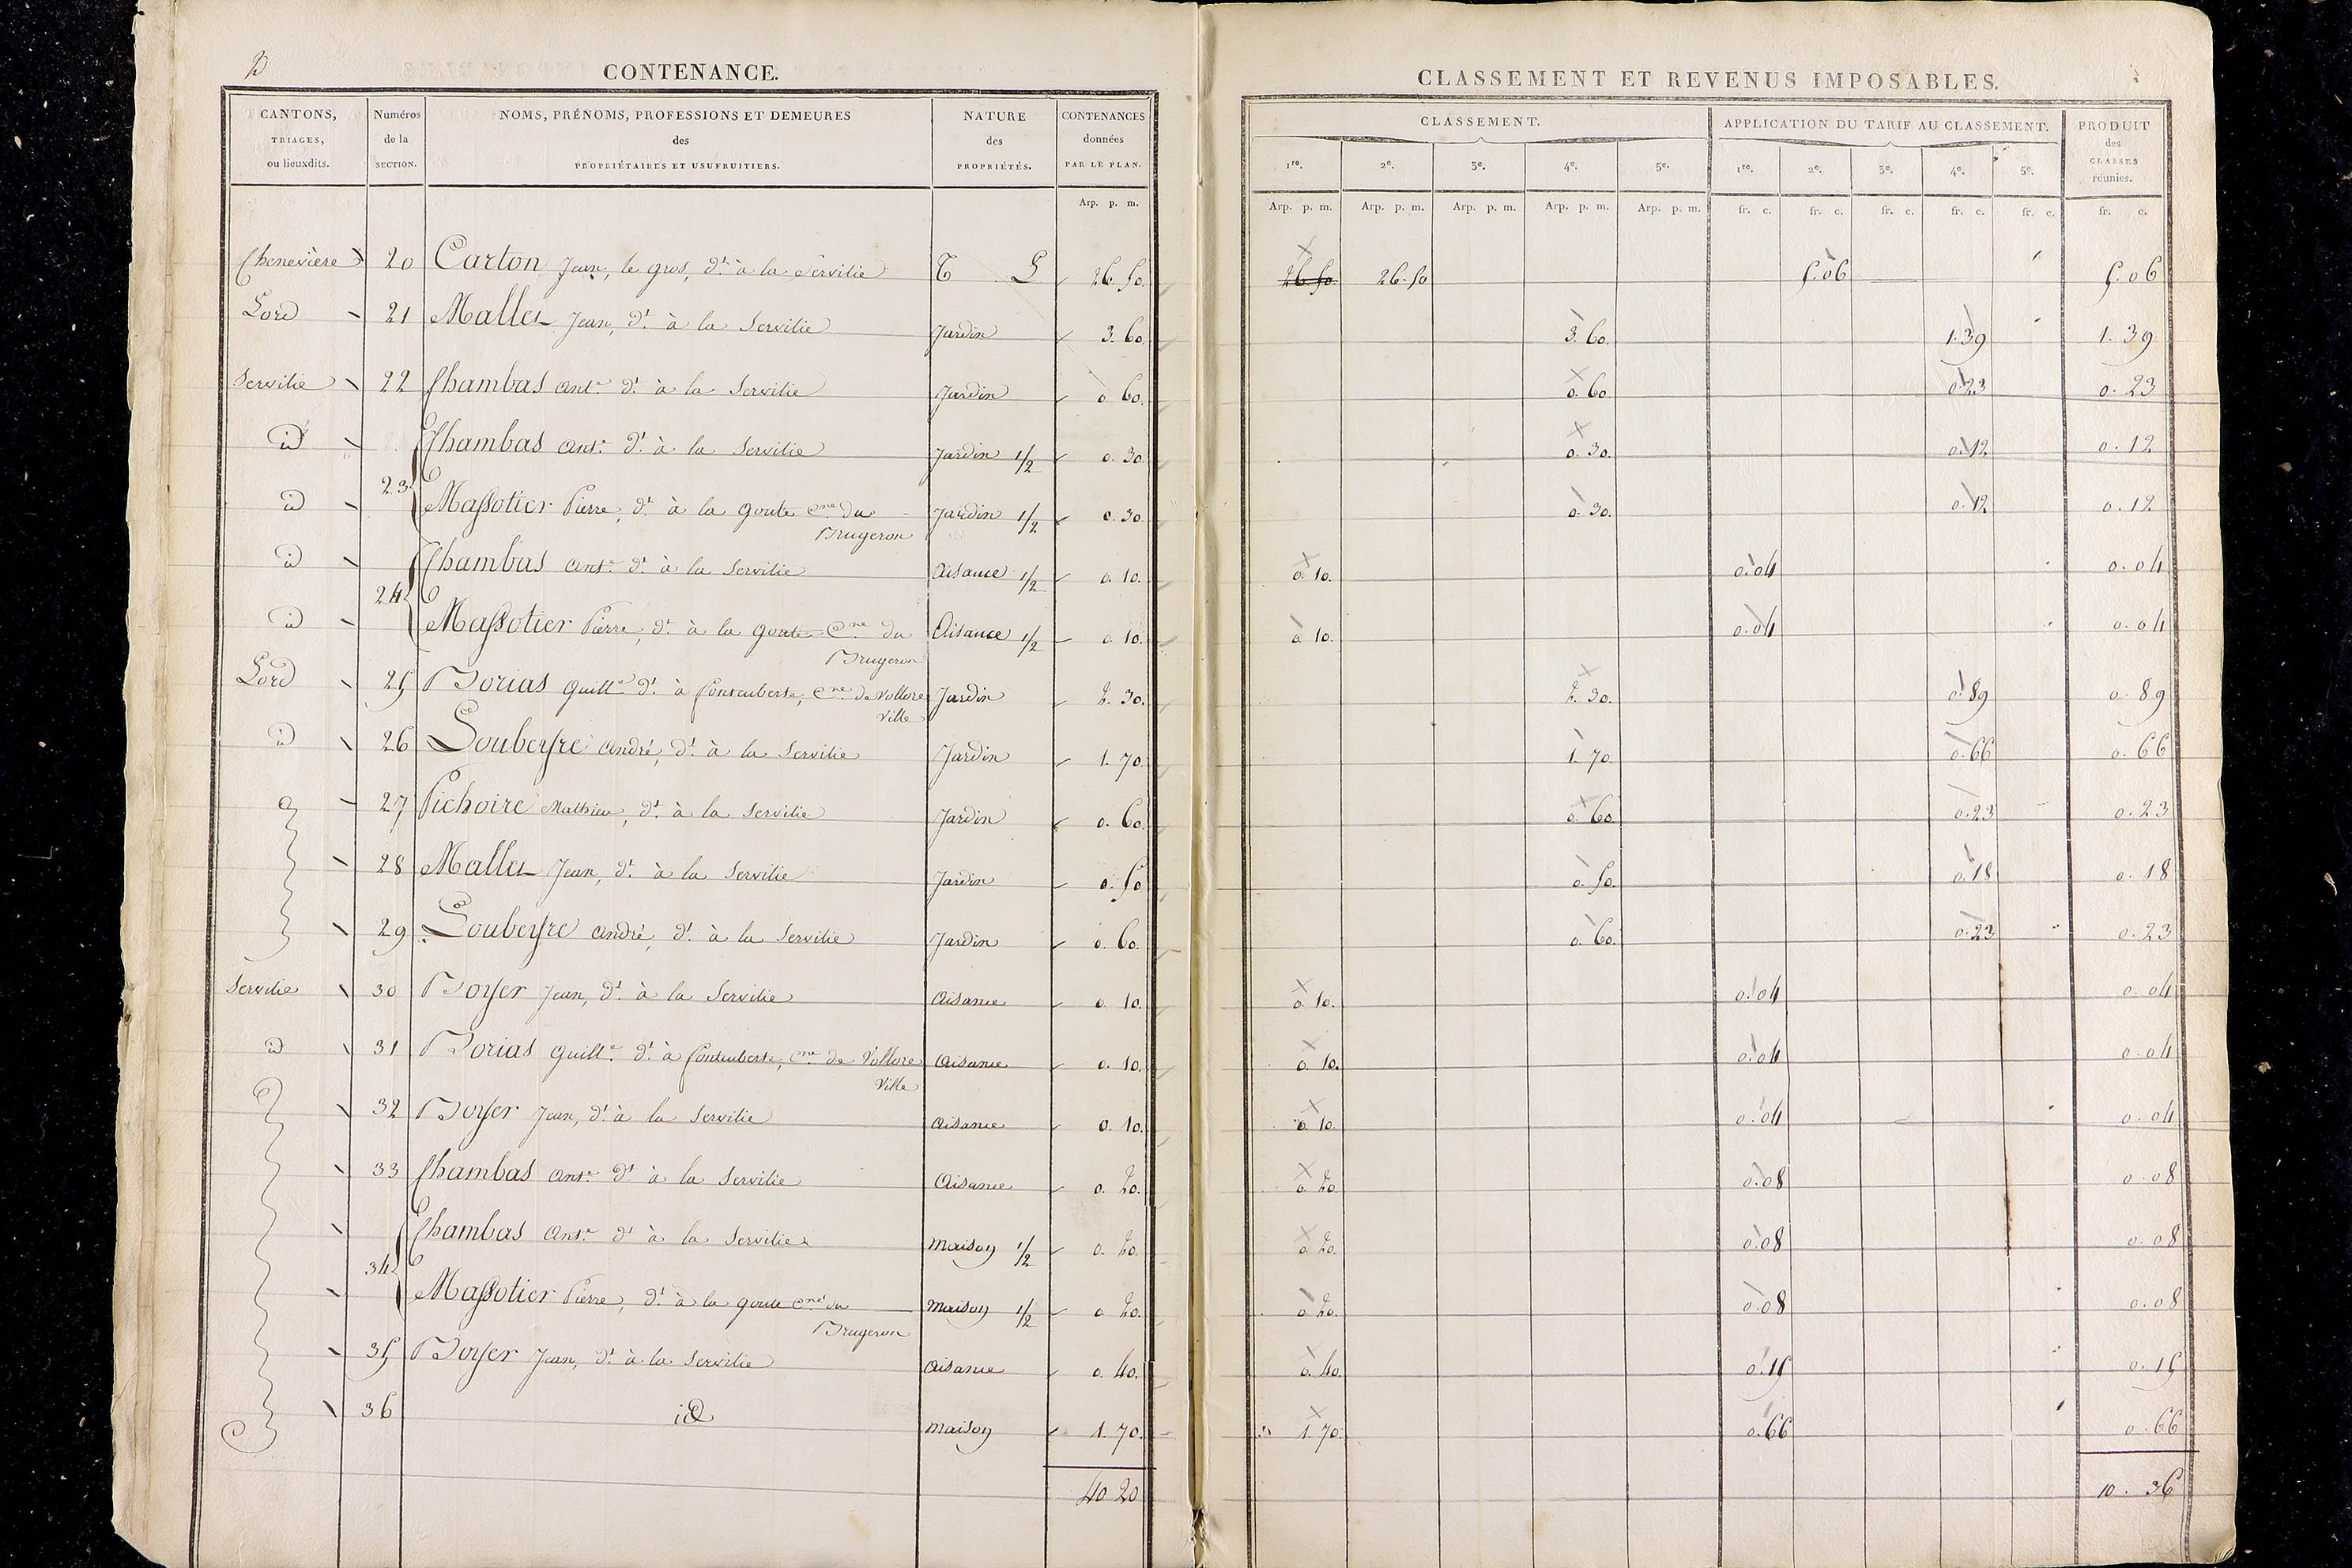 2
CONTENANCE.
CLASSEMENT ET REVENUS IMPOSABLES.
CANTONS, TRIAGES, ou lieuxdits.
Numéros de la SECTION.
NOMS, PRÉNOMS, PROFESSIONS ET DEMEURES des PROPRIÉTAIRES ET USUFRUITIERS.
NATURE des PROPRIÉTÉS.
CONTENANCES données PAR LE PLAN.
CLASSEMENT.
APPLICATION DU TARIF AU CLASSEMENT.
PRODUIT des CLASSES réunies.
1re. 2e. 3e. 4e. 5e. 1re. 2e. 3e. 4e. 5e.
Arp. p. m. Arp. p. m. Arp. p. m. Arp. p. m. Arp. p. m. Arp. p. m. fr. c. fr. c. fr. c. fr. c. fr. c. fr. c.
Chenevière 20 Carton Jean, le gros, dt. à la Servilie T L 26. 50. 26. 50. 26. 50 5. 06 5. 06
Lord 21 Mallet Jean, dt. à la Servilie Jardin 3. 60. 3. 60. 1. 39 1. 39
Servilie 22 Chambas Ante. dt. à la Servilie Jardin 0. 60. 0. 60. 0. 23 0. 23
id Chambas Ante. dt. à la Servilie Jardin 1/2 0. 30. 0. 30. 0. 12 0. 12
23
id Massotier Pierre, dt. à la goute cne du Jardin 1/2 0. 30. 0. 30. 0. 12 0. 12
Brugeron
id Chambas Ante. dt. à la Servilie Aisance 1/2 0. 10. 0. 10. 0. 04 0. 04
24
id Massotier Pierre, dt. à la goute Cne du Aisance 1/2 0. 10. 0. 10. 0. 04 0. 04
Brugeron
Lord 25 Borias Guille. dt. à Conteuberte, Cne. de Vollore Jardin 2. 30. 2. 30. 0. 89 0. 89
Ville
id 26 Loubeyre André, dt. à la Servilie Jardin 1. 70. 1. 70. 0. 66 0. 66
27 Pichoire Mathieu, dt. à la Servilie Jardin 0. 60. 0. 60. 0. 23 0. 23
28 Mallet Jean, dt. à la Servilie Jardin 0. 50. 0. 50. 0. 18 0. 18
29 Loubeyre André, dt. à la Servilie Jardin 0. 60. 0. 60. 0. 23 0. 23
Servilie 30 Boyer Jean, dt. à la Servilie Aisance 0. 10. 0. 10. 0. 04 0. 04
id 31 Borias Guille. dt. à Conteuberte, cne de Vollore Aisance 0. 10. 0. 10. 0. 04 0. 04
Ville
32 Boyer Jean, dt. à la Servilie Aisance 0. 10. 0. 10. 0. 04 0. 04
33 Chambas Ante. dt. à la Servilie Aisance 0. 20. 0. 20. 0. 08 0. 08
Chambas Ante. dt. à la Servilie Maison 1/2 0. 20. 0. 20. 0. 08 0. 08
34
Massotier Pierre, dt. à la goute cne du Maison 1/2 0. 20. 0. 20. 0. 08 0. 08
Brugeron
35 Boyer Jean, dt. à la Servilie Aisance 0. 40. 0. 40. 0. 15 0. 15
36 id Maison 1. 70. 1. 70. 0. 66 0. 66
40 20 10. 36